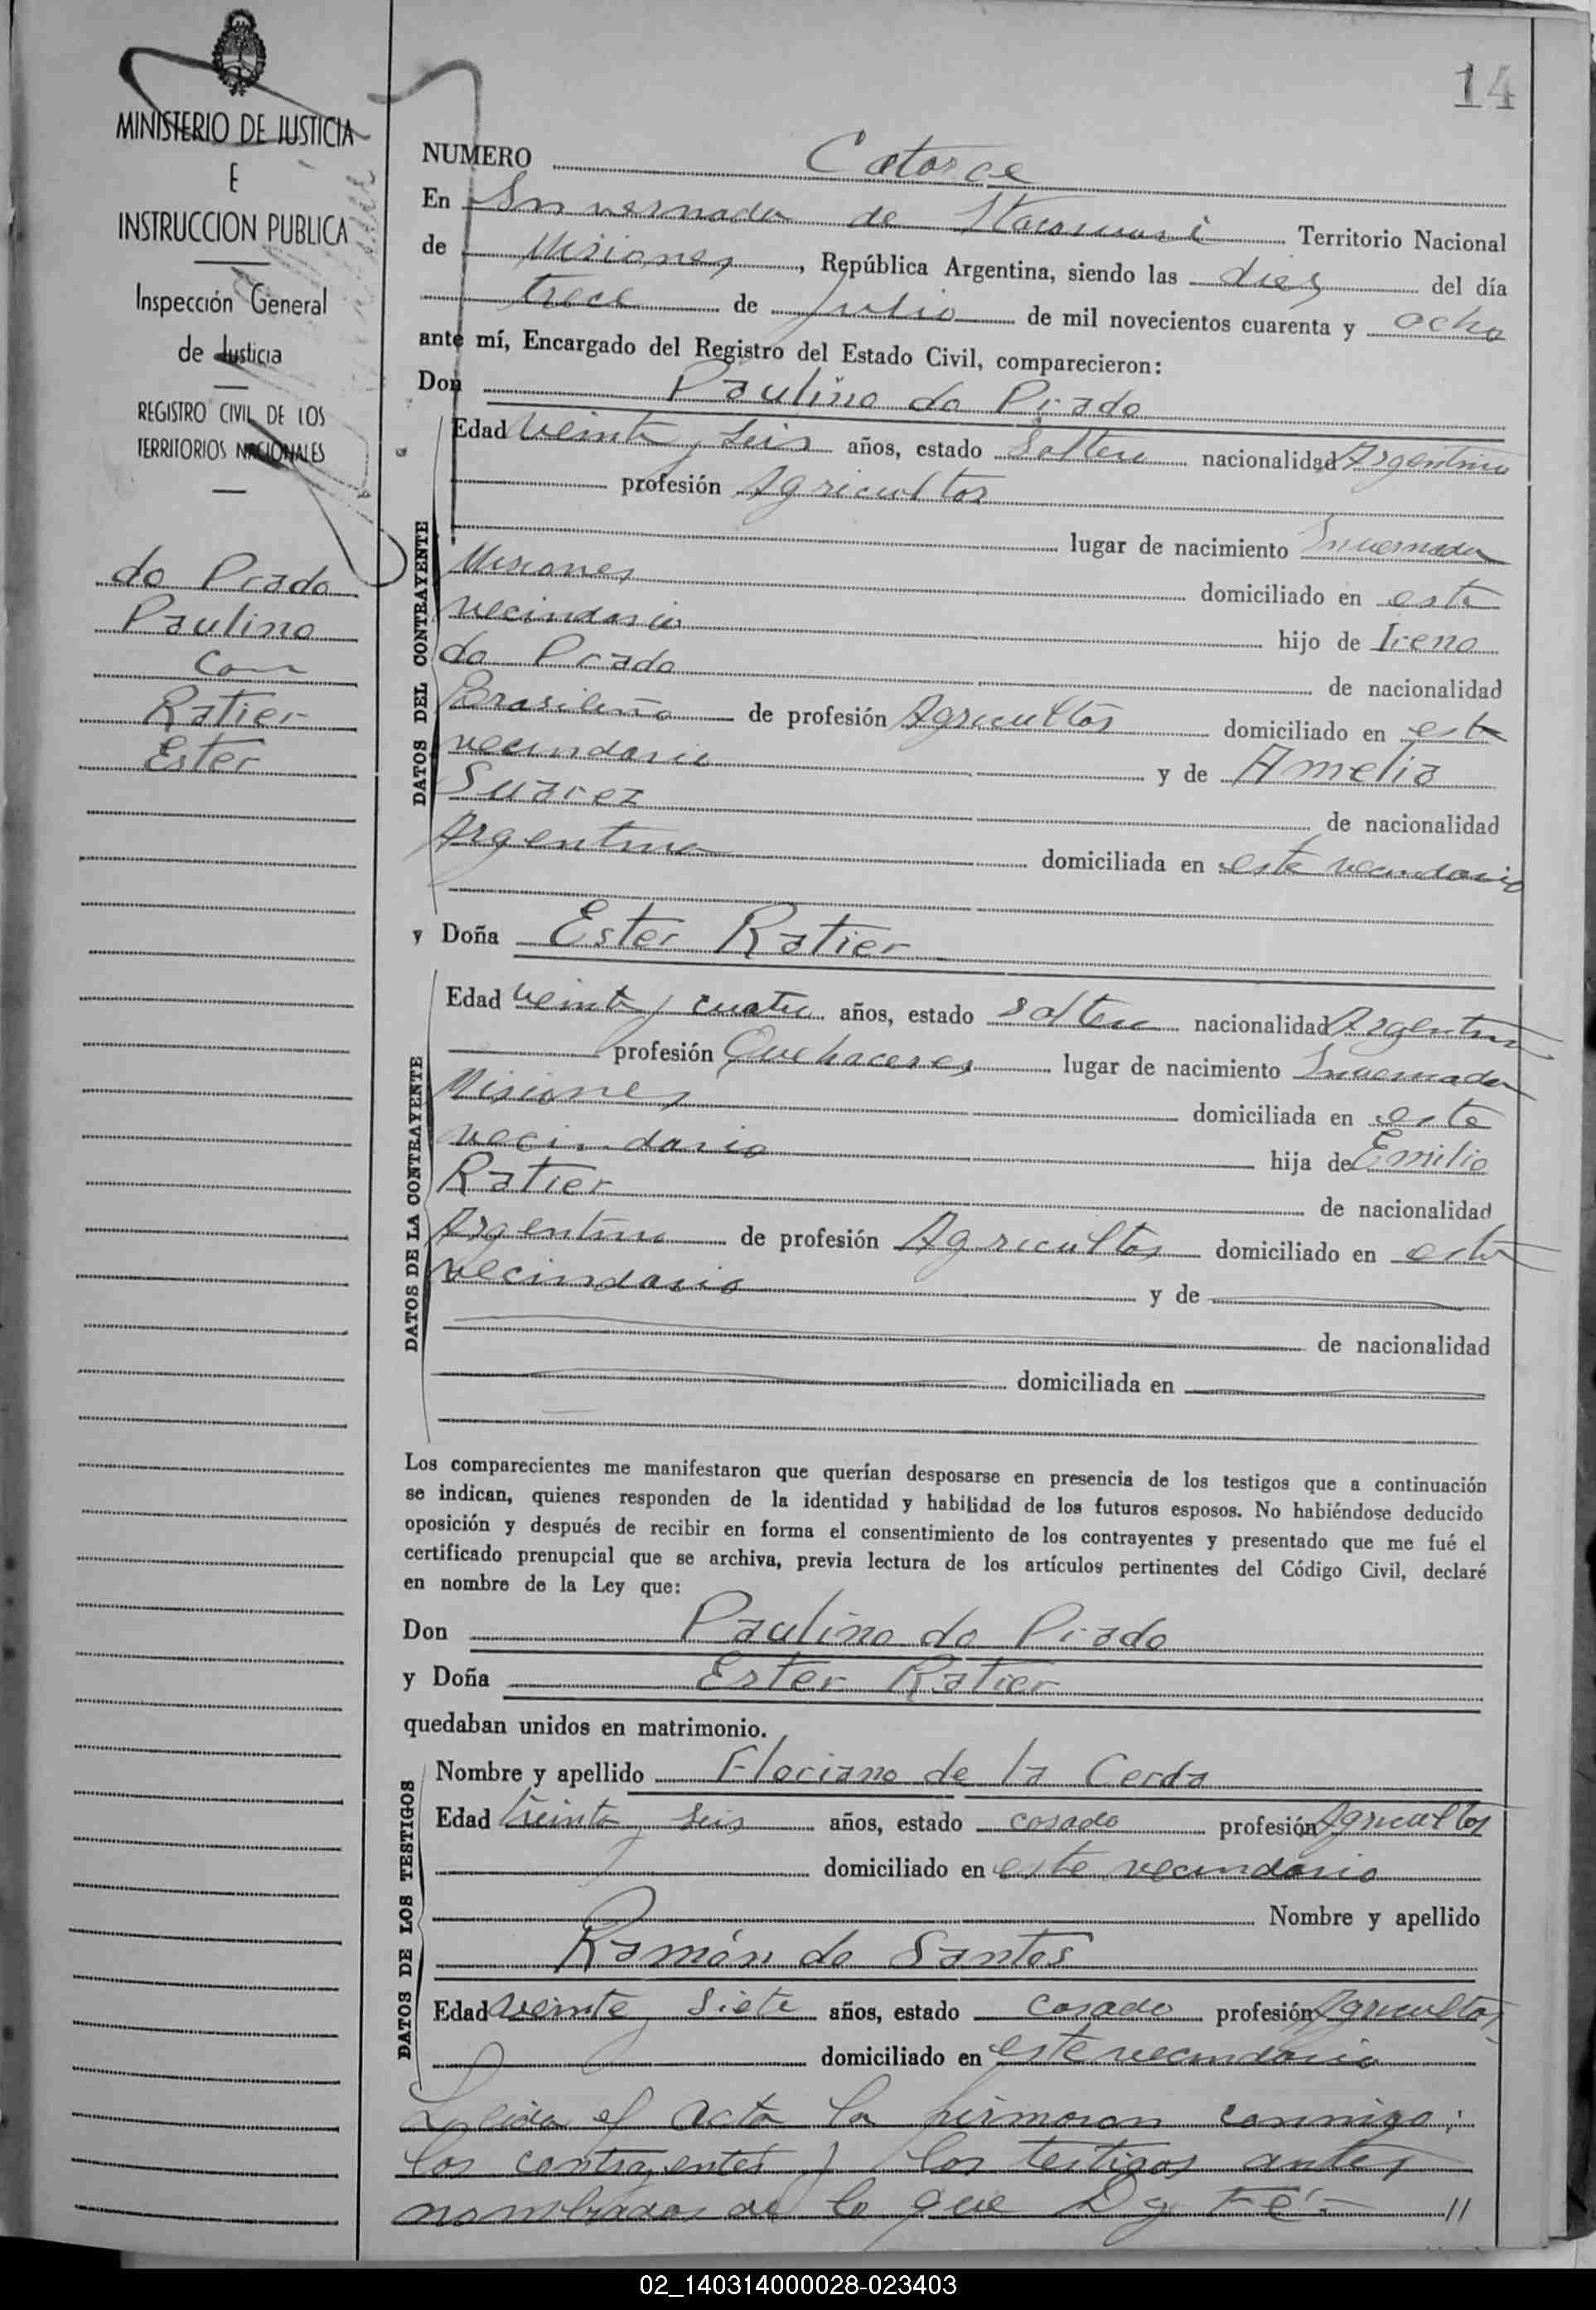 14
MINISTERIO DE JUSTICIA
E
INSTRUCCION PUBLICA
Inspección General
de Justicia
REGISTRO CIVIL DE LOS
TERRITORIOS NACIONALES
do Prado
Paulino
con
Ratier
Ester
NUMERO Catorce
En Invernada de Itacaruaré Territorio Nacional
de Misiones, República Argentina, siendo las diez del día
trece de julio de mil novecientos cuarenta y ocho
ante mí, Encargado del Registro del Estado Civil, comparecieron:
Don Paulino do Prado
DATOS DEL CONTRAYENTE
Edad veinte y seis años, estado Soltero nacionalidad Argentino
profesión Agricultor
lugar de nacimiento Invernada
Misiones domiciliado en este
vecindario hijo de Ireno
do Prado de nacionalidad
Brasileño de profesión Agricultor domiciliado en este
vecindario y de Amelia
Suarez de nacionalidad
Argentina domiciliada en este vecindario
y Doña Ester Ratier
DATOS DE LA CONTRAYENTE
Edad veinte y cuatro años, estado soltera nacionalidad Argentina
profesión Quehaceres lugar de nacimiento Invernada
Misiones domiciliada en este
vecindario hija de Emilio
Ratier de nacionalidad
Argentino de profesión Agricultor domiciliado en este
vecindario y de
de nacionalidad
domiciliada en
Los comparecientes me manifestaron que querían desposarse en presencia de los testigos que a continuación
se indican, quienes responden de la identidad y habilidad de los futuros esposos. No habiéndose deducido
oposición y después de recibir en forma el consentimiento de los contrayentes y presentado que me fué el
certificado prenupcial que se archiva, previa lectura de los artículos pertinentes del Código Civil, declaré
en nombre de la Ley que:
Don Paulino do Prado
y Doña Ester Ratier
quedaban unidos en matrimonio.
DATOS DE LOS TESTIGOS
Nombre y apellido Floriano de la Cerda
Edad treinta y seis años, estado casado profesión Agricultor
domiciliado en este vecindario
Nombre y apellido
Ramón do Santos
Edad veinte y siete años, estado casado profesión Agricultor
domiciliado en este vecindario
Leida el acta la firmaron conmigo;
los contrayentes y los testigos antes
nombrados de lo que Doy Fé.- //
02_140314000028-023403